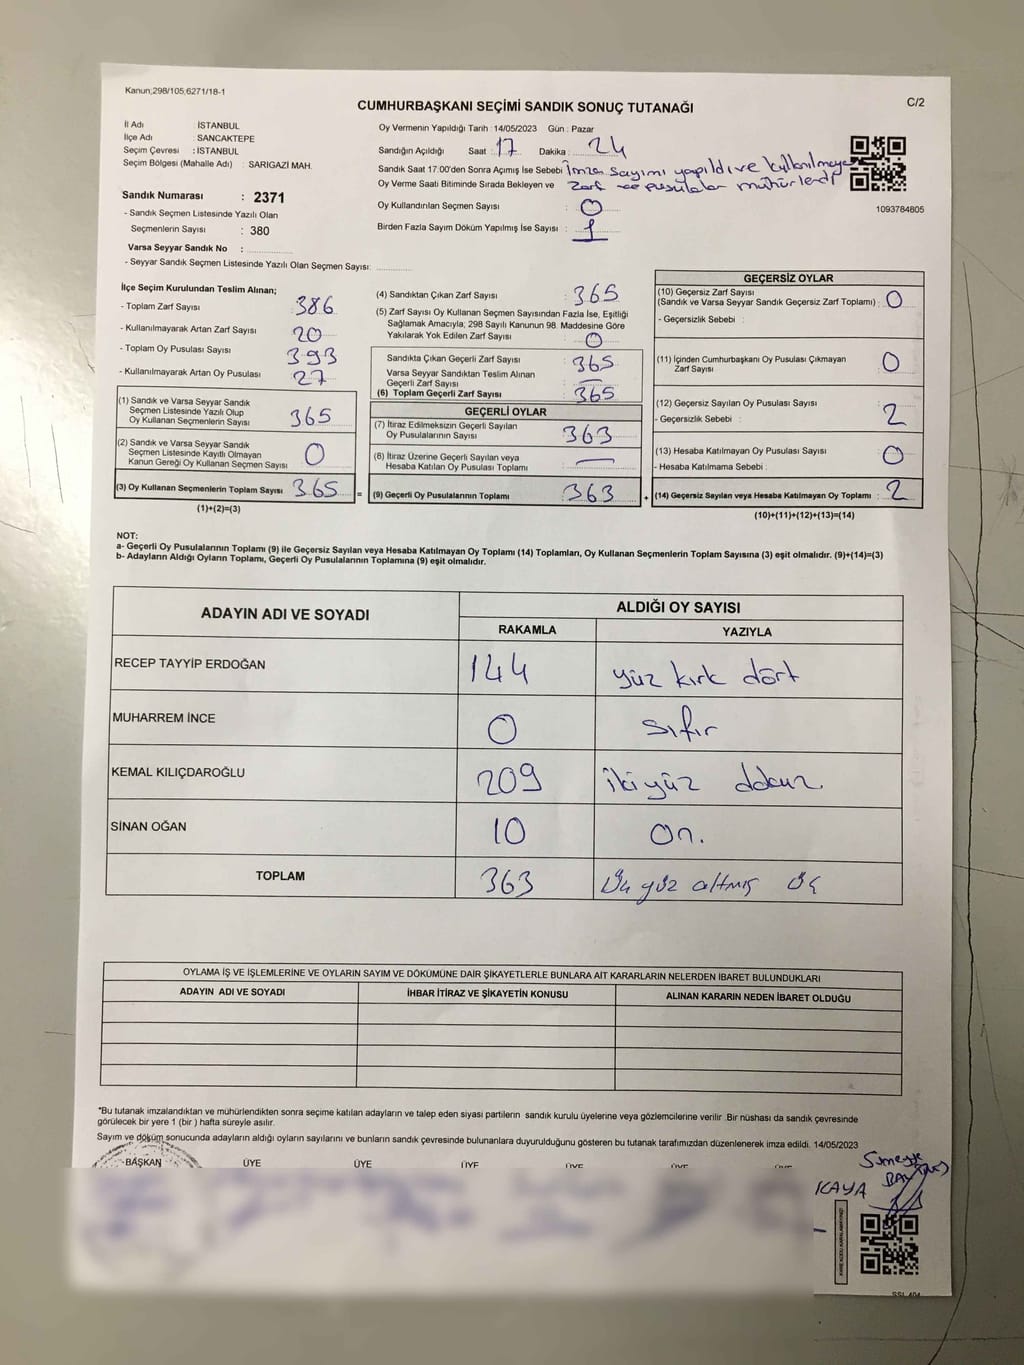 Kanun;298/105,6271/18-1
CUMHURBAŞKANI SEÇİMİ SANDIK SONUÇ TUTANAĞI
C/2
İl Adı : İSTANBUL
İlçe Adı : SANCAKTEPE
Seçim Çevresi : İSTANBUL
Seçim Bölgesi (Mahalle Adı) : SARIGAZİ MAH.
Sandık Numarası : 2371
- Sandık Seçmen Listesinde Yazılı Olan
Seçmenlerin Sayısı : 380
Varsa Seyyar Sandık No :
- Seyyar Sandık Seçmen Listesinde Yazılı Olan Seçmen Sayısı:
Oy Vermenin Yapıldığı Tarih :14/05/2023 Gün : Pazar
Sandığın Açıldığı Saat : 17 Dakika : 24
Sandık Saat 17:00'den Sonra Açımış İse Sebebi İmza Sayımı yapıldı ve kullanılmayan
Oy Verme Saati Bitiminde Sırada Bekleyen ve Zarf ve pusulalar mühürlendi
Oy Kullandırılan Seçmen Sayısı : 0
Birden Fazla Sayım Döküm Yapılmış İse Sayısı : 1
1093784805
İlçe Seçim Kurulundan Teslim Alınan;
- Toplam Zarf Sayısı 386
- Kullanılmayarak Artan Zarf Sayısı 20
- Toplam Oy Pusulası Sayısı 393
- Kullanılmayarak Artan Oy Pusulası 27
(1) Sandık ve Varsa Seyyar Sandık
Seçmen Listesinde Yazılı Olup
Oy Kullanan Seçmenlerin Sayısı 365
(2) Sandık ve Varsa Seyyar Sandık
Seçmen Listesinde Kayıtlı Olmayan
Kanun Gereği Oy Kullanan Seçmen Sayısı 0
(3) Oy Kullanan Seçmenlerin Toplam Sayısı 365
(1)+(2)=(3)
(4) Sandıktan Çıkan Zarf Sayısı : 365
(5) Zarf Sayısı Oy Kullanan Seçmen Sayısından Fazla İse, Eşitliği
Sağlamak Amacıyla; 298 Sayılı Kanunun 98. Maddesine Göre
Yakılarak Yok Edilen Zarf Sayısı : 0
Sandıkta Çıkan Geçerli Zarf Sayısı : 365
Varsa Seyyar Sandıktan Teslim Alınan
Geçerli Zarf Sayısı : —
(6) Toplam Geçerli Zarf Sayısı : 365
GEÇERLİ OYLAR
(7) İtiraz Edilmeksizin Geçerli Sayılan
Oy Pusulalarının Sayısı : 363
(8) İtiraz Üzerine Geçerli Sayılan veya
Hesaba Katılan Oy Pusulası Toplamı : —
= (9) Geçerli Oy Pusulalarının Toplamı : 363
GEÇERSİZ OYLAR
(10) Geçersiz Zarf Sayısı
(Sandık ve Varsa Seyyar Sandık Geçersiz Zarf Toplamı) : 0
- Geçersizlik Sebebi :
(11) İçinden Cumhurbaşkanı Oy Pusulası Çıkmayan
Zarf Sayısı : 0
(12) Geçersiz Sayılan Oy Pusulası Sayısı : 2
- Geçersizlik Sebebi :
(13) Hesaba Katılmayan Oy Pusulası Sayısı : 0
- Hesaba Katılmama Sebebi :
+ (14) Geçersiz Sayılan veya Hesaba Katılmayan Oy Toplamı : 2
(10)+(11)+(12)+(13)=(14)
NOT:
a- Geçerli Oy Pusulalarının Toplamı (9) ile Geçersiz Sayılan veya Hesaba Katılmayan Oy Toplamı (14) Toplamları, Oy Kullanan Seçmenlerin Toplam Sayısına (3) eşit olmalıdır. (9)+(14)=(3)
b- Adayların Aldığı Oyların Toplamı, Geçerli Oy Pusulalarının Toplamına (9) eşit olmalıdır.
ADAYIN ADI VE SOYADI
ALDIĞI OY SAYISI
RAKAMLA YAZIYLA
RECEP TAYYİP ERDOĞAN 144 yüz kırk dört
MUHARREM İNCE 0 sıfır
KEMAL KILIÇDAROĞLU 209 ikiyüz dokuz
SİNAN OĞAN 10 on.
TOPLAM 363 Üç yüz altmış üç
OYLAMA İŞ VE İŞLEMLERİNE VE OYLARIN SAYIM VE DÖKÜMÜNE DAİR ŞİKAYETLERLE BUNLARA AİT KARARLARIN NELERDEN İBARET BULUNDUKLARI
ADAYIN ADI VE SOYADI İHBAR İTİRAZ VE ŞİKAYETİN KONUSU ALINAN KARARIN NEDEN İBARET OLDUĞU
*Bu tutanak imzalandıktan ve mühürlendikten sonra seçime katılan adayların ve talep eden siyasi partilerin sandık kurulu üyelerine veya gözlemcilerine verilir .Bir nüshası da sandık çevresinde
görülecek bir yere 1 (bir ) hafta süreyle asılır.
Sayım ve döküm sonucunda adayların aldığı oyların sayılarını ve bunların sandık çevresinde bulunanlara duyurulduğunu gösteren bu tutanak tarafımızdan düzenlenerek imza edildi. 14/05/2023
BAŞKAN ÜYE ÜYE ÜYE ÜYE ÜYE
KAYA